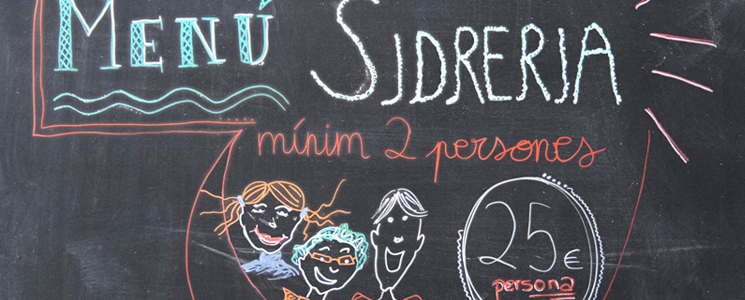 MENÚ SIDRERIA
mínim 2 persones
25€
persona